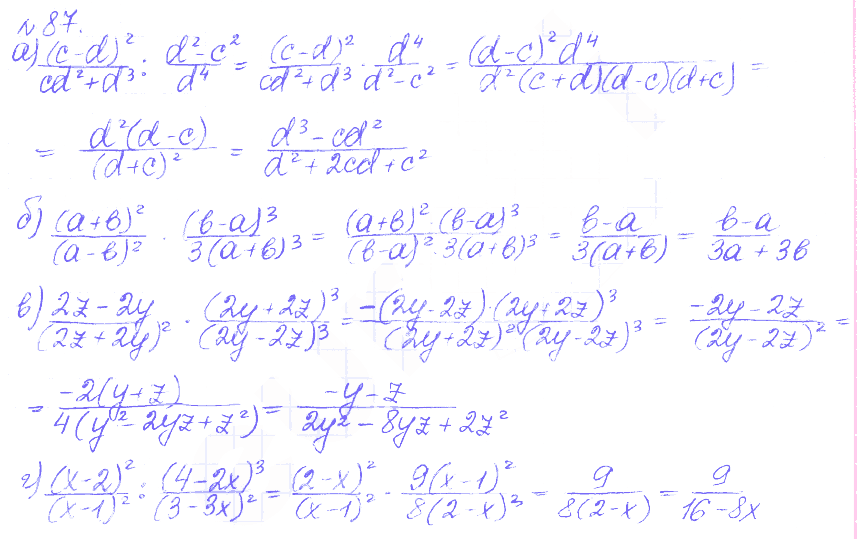 № 87.
а) (c-d)²/(cd²+d³) : (d²-c²)/d⁴ = (c-d)²/(cd²+d³) · d⁴/(d²-c²) = (d-c)²d⁴/(d²(c+d)(d-c)(d+c)) =
= d²(d-c)/(d+c)² = (d³-cd²)/(d²+2cd+c²)
б) (a+в)²/(a-в)² · (в-a)³/(3(a+в)³) = ((a+в)²·(в-a)³)/((в-a)²·3(a+в)³) = (в-a)/(3(a+в)) = (в-a)/(3a+3в)
в) (2z-2y)/(2z+2y)² · (2y+2z)³/(2y-2z)³ = (-(2y-2z)·(2y+2z)³)/((2y+2z)²(2y-2z)³) = (-2y-2z)/(2y-2z)² =
= (-2(y+z))/(4(y²-2yz+z²)) = (-y-z)/(2y²-8yz+2z²)
г) (x-2)²/(x-1)² : (4-2x)³/(3-3x)² = (2-x)²/(x-1)² · 9(x-1)²/(8(2-x)³) = 9/(8(2-x)) = 9/(16-8x)